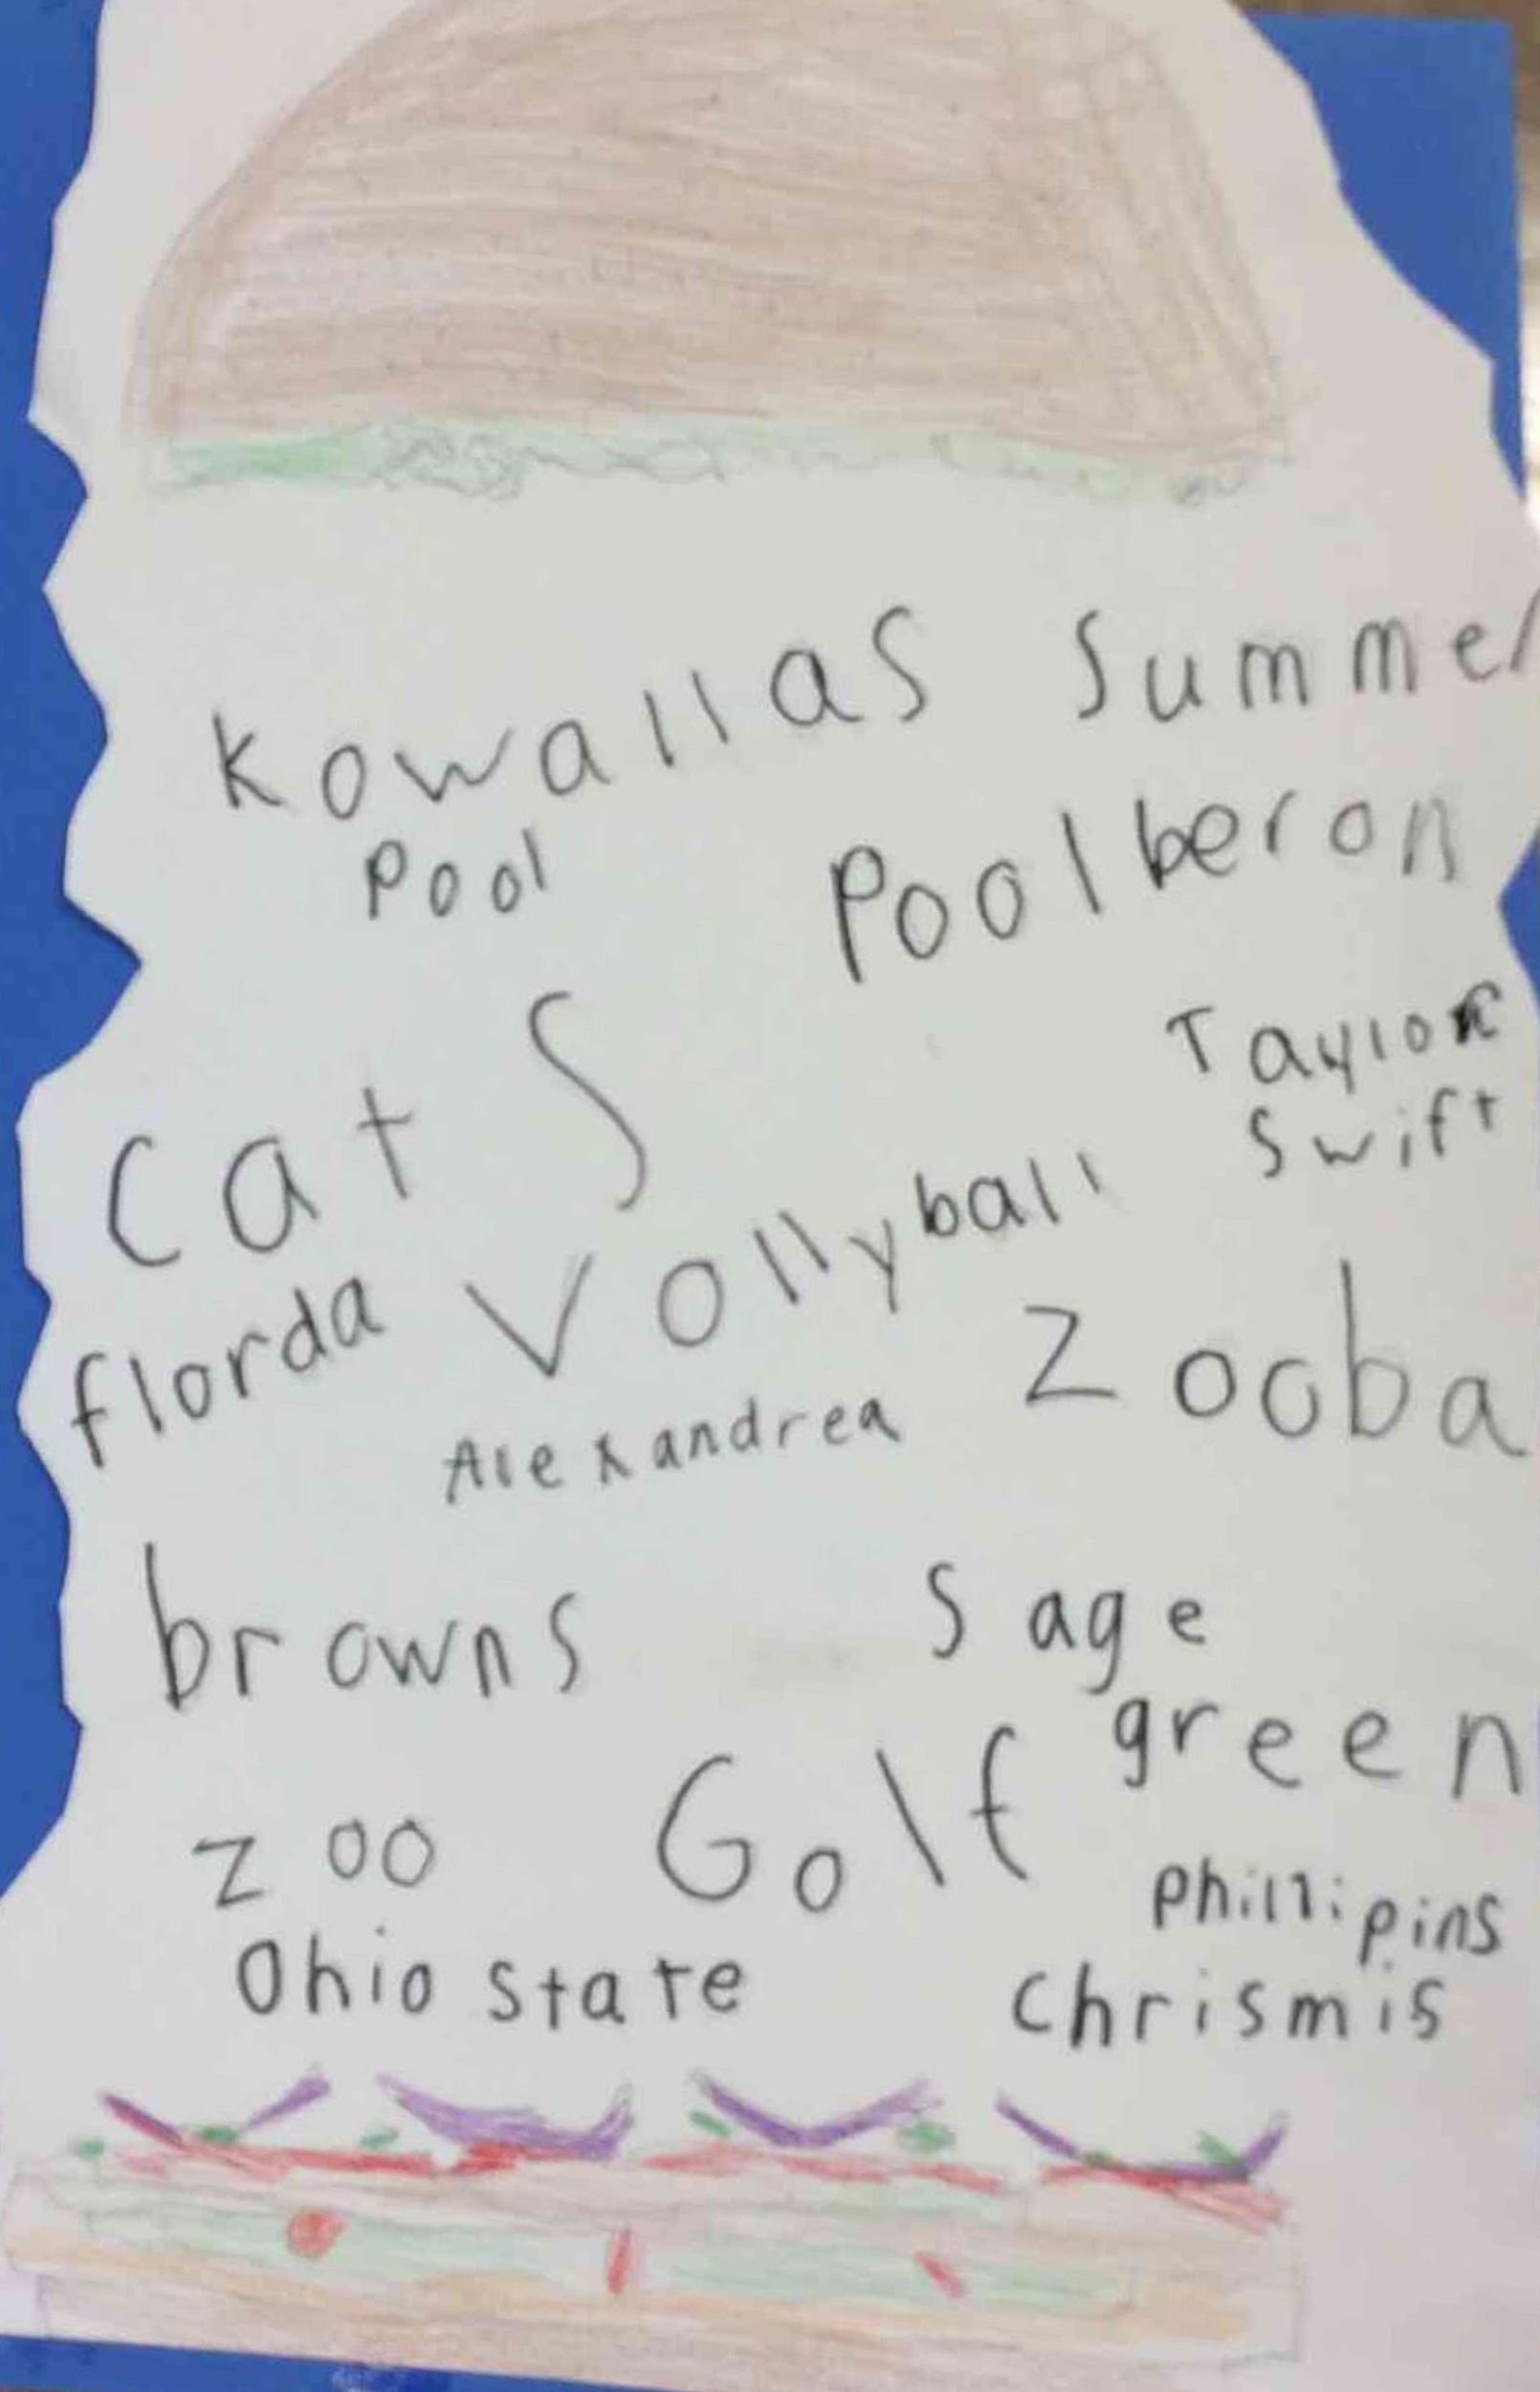 kowallas summer
Pool Poolberon
cats Taylor
Swift
florda Vollyball
Alexandrea Zooba
browns sage
green
zoo Golf
Phillipins
Ohio state Chrismis